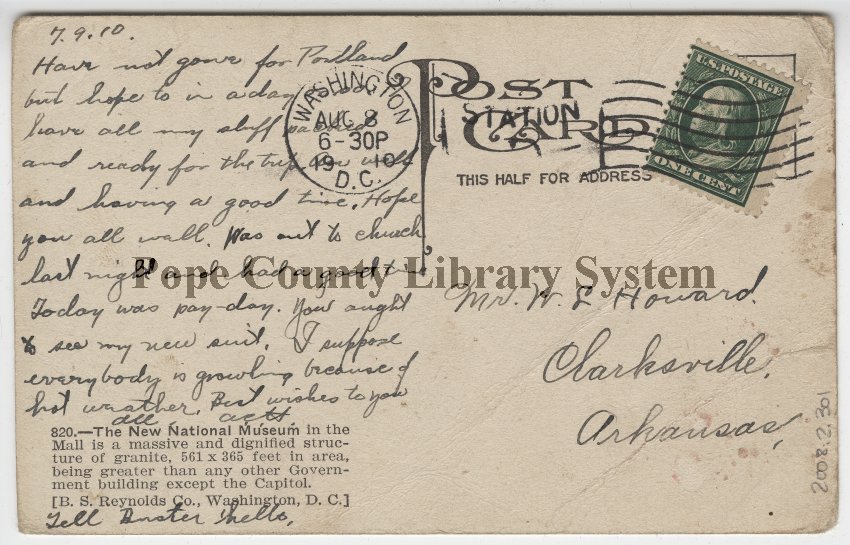 7.9.10.
Have not gone for Portland
but hope to in a day or so.
have all my stuff packed
and ready for the trip. am well
and having a good time. Hope
you all wall. Was out to church
last night and had a good time
Today was pay-day. You aught
to see my new suit. I suppose
everybody is growling because of
hot weather. Best wishes to you
all
820.—The New National Museum in the
Mall is a massive and dignified struc-
ture of granite, 561 x 365 feet in area,
being greater than any other Govern-
ment building except the Capitol.
[B. S. Reynolds Co., Washington, D. C.]
Tell Buster hello.
WASHINGTON
AUG 8
6-30P
1910
D.C.
STATION
POST CARD
THIS HALF FOR ADDRESS
U.S. POSTAGE
ONE CENT
Mr. W. L. Howard.
Clarksville,
Arkansas,
2008.2.301
Pope County Library System